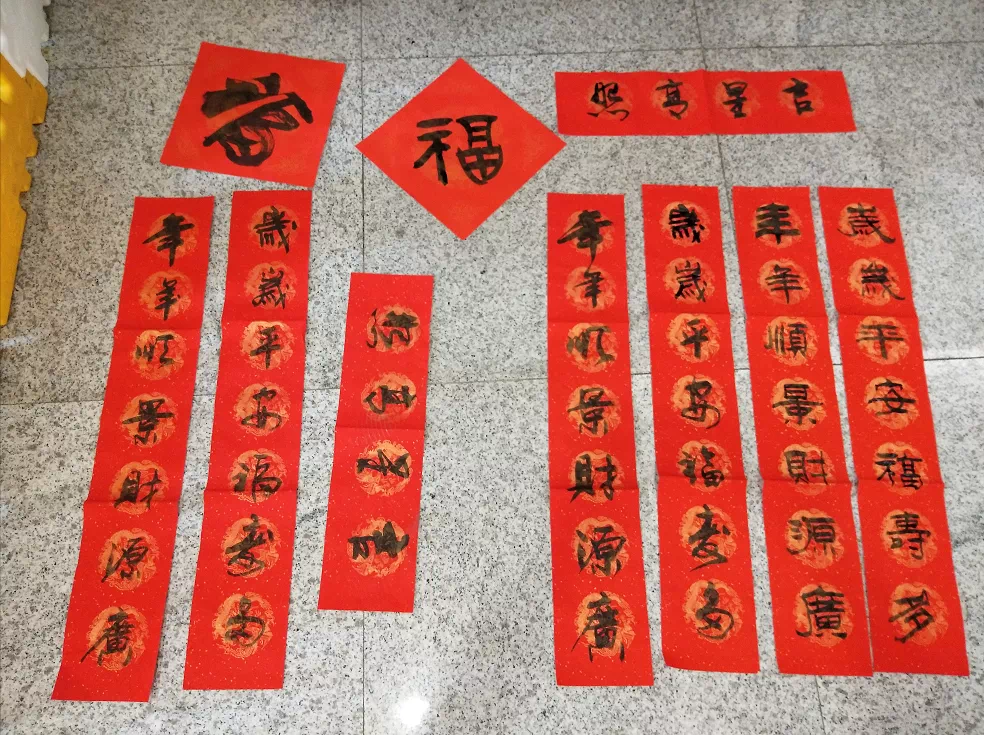 春
福
吉星高照
年年順景財源廣
歲歲平安福壽多
年年順景財源廣
歲歲平安福壽多
年年順景財源廣
歲歲平安福壽多